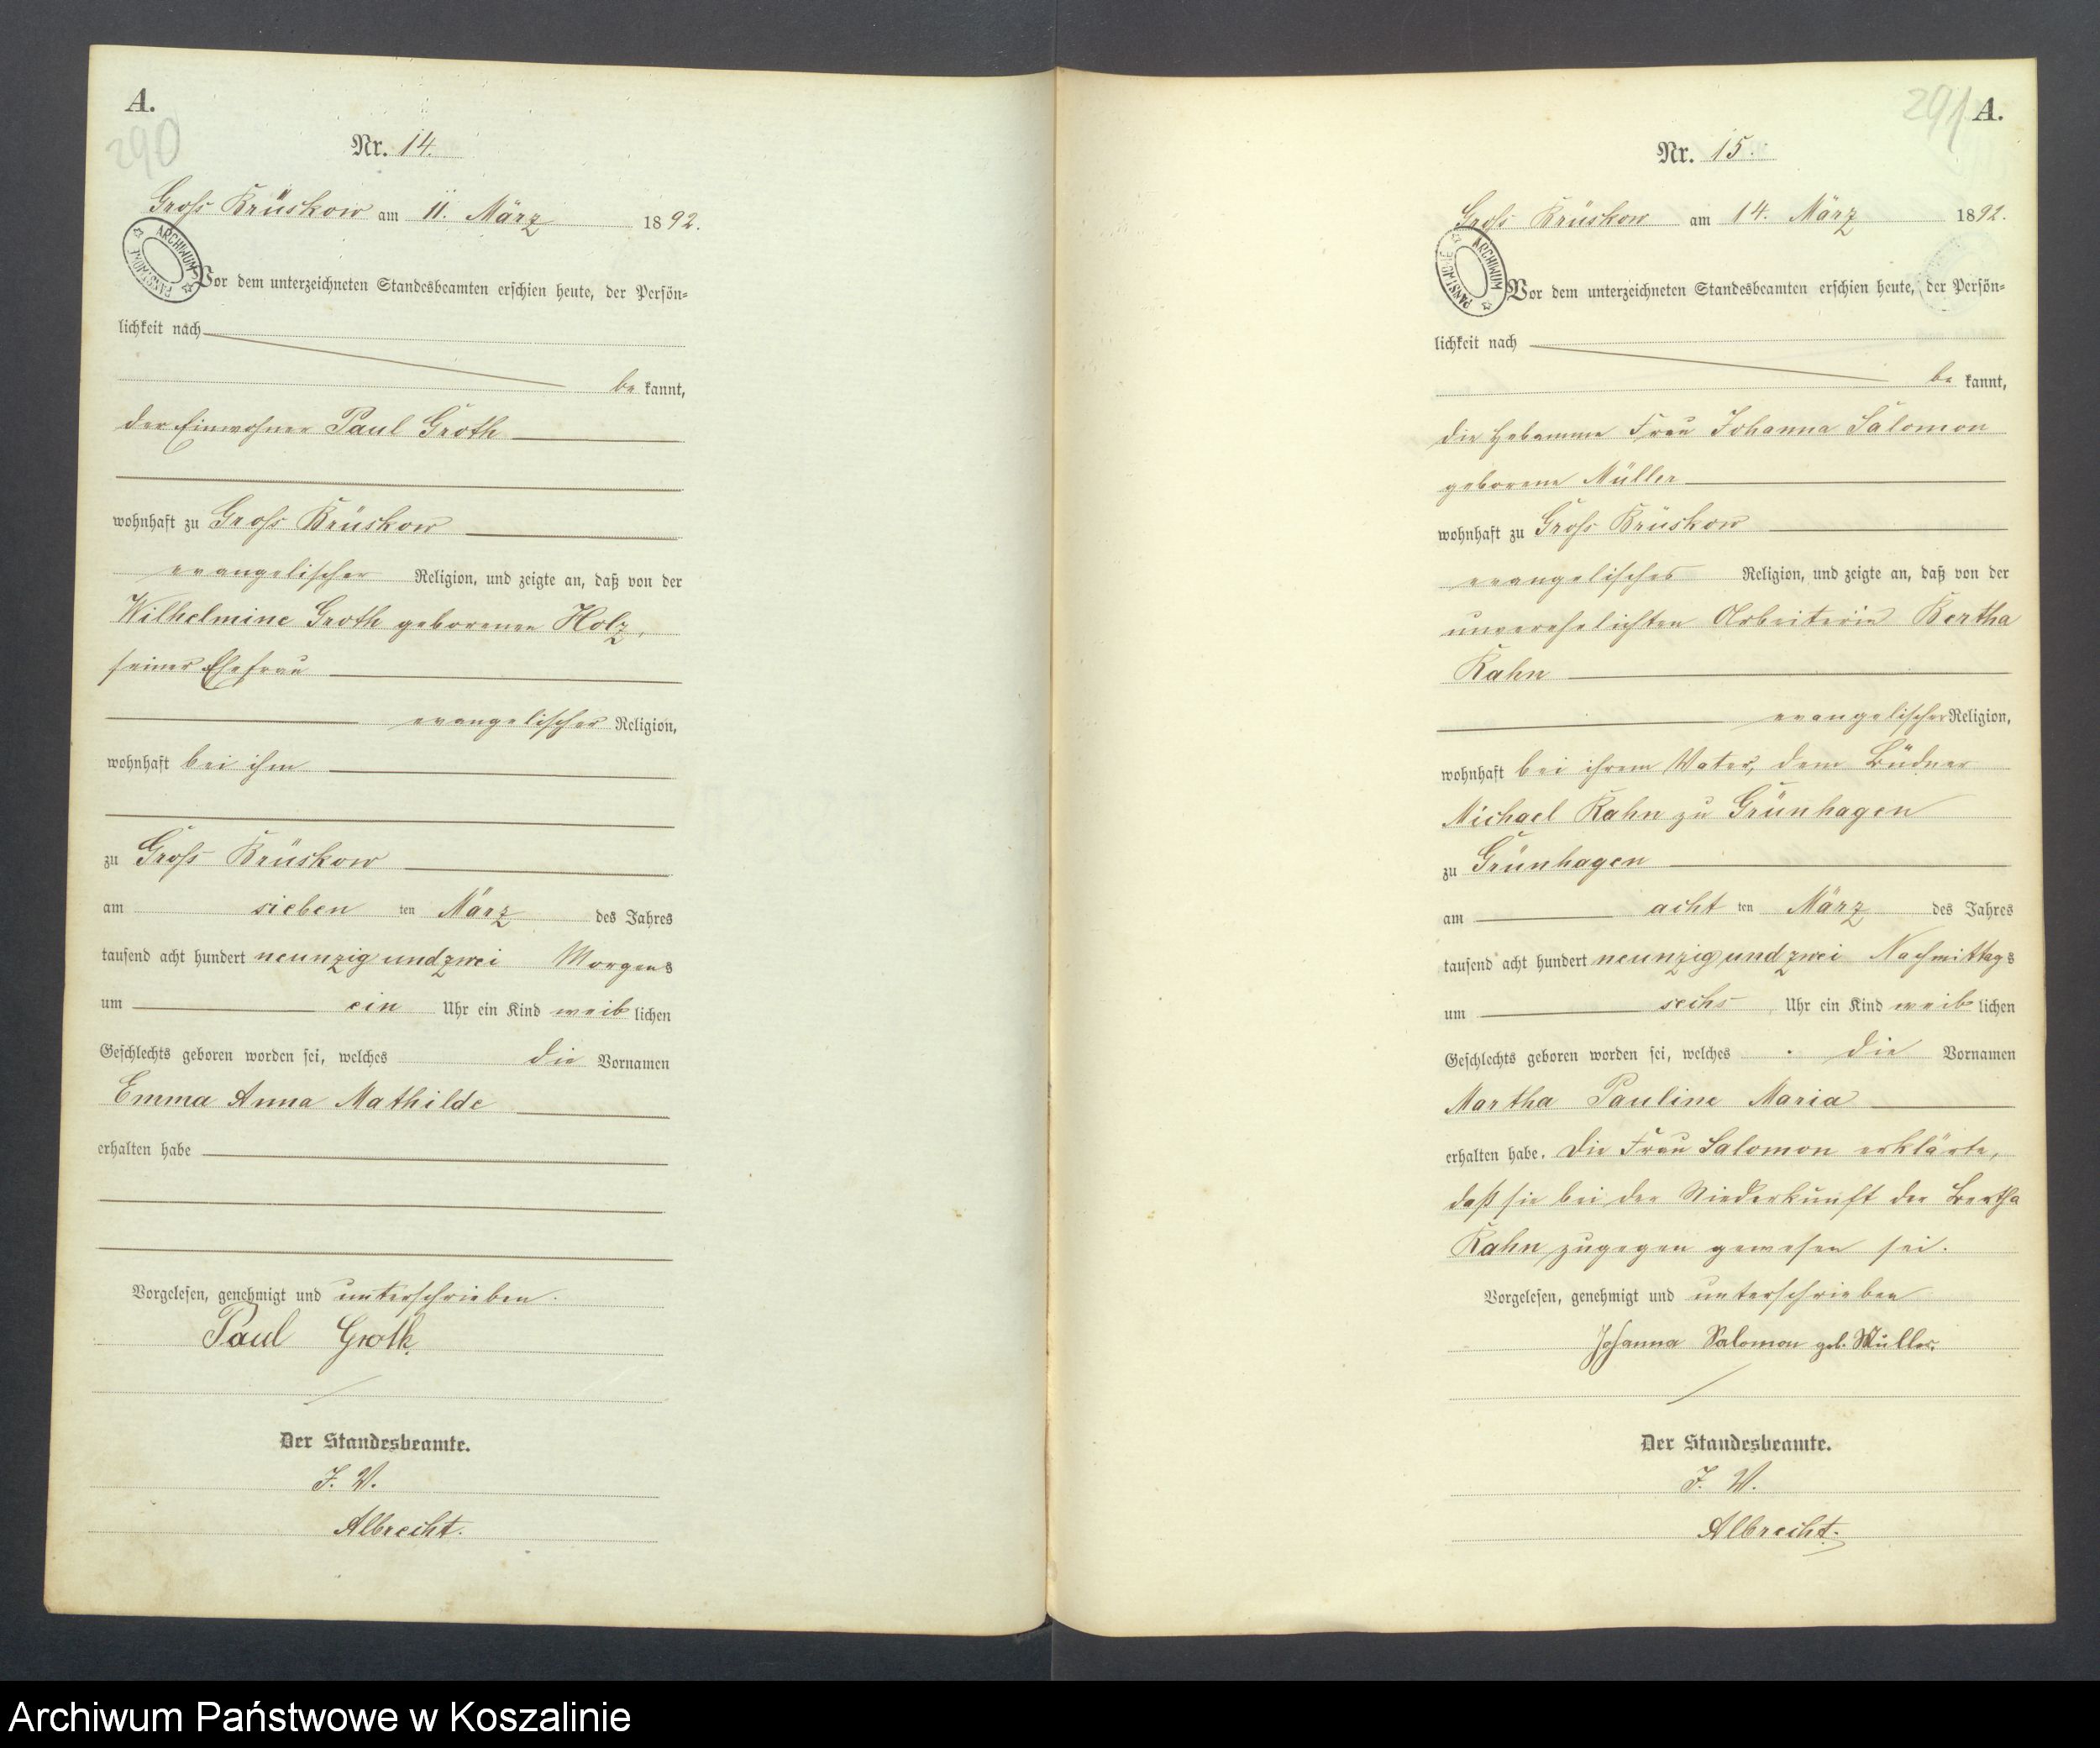 A.
290
Nr. 14.
Gross Krüskow am 11. März 1892.
ARCHIWUM PAŃSTWOWE
Vor dem unterzeichneten Standesbeamten erschien heute, der Persön=
lichkeit nach
be kannt,
der Einwohner Paul Groth
wohnhaft zu Gross Krüskow
evangelischer Religion, und zeigte an, daß von der
Wilhelmine Groth geborenen Holz,
seiner Ehefrau
evangelischer Religion,
wohnhaft bei ihm
zu Gross Krüskow
am sieben ten März des Jahres
tausend acht hundert neunzig und zwei Morgens
um ein Uhr ein Kind weib lichen
Geschlechts geboren worden sei, welches die Vornamen
Emma Anna Mathilde
erhalten habe
Vorgelesen, genehmigt und unterschrieben.
Paul Groth.
Der Standesbeamte.
J. V.
Albrecht.
291 A.
Nr. 15.
Gross Krüskow am 14. März 1892.
ARCHIWUM PAŃSTWOWE
Vor dem unterzeichneten Standesbeamten erschien heute, der Persön=
lichkeit nach
be kannt,
die Hebamme Frau Johanna Salomon
geborene Müller
wohnhaft zu Gross Krüskow
evangelischer Religion, und zeigte an, daß von der
unverehelichten Arbeiterin Bertha
Kahn
evangelischer Religion,
wohnhaft bei ihrem Vater, dem Büdner
Michael Kahn zu Grünhagen
zu Grünhagen
am acht ten März des Jahres
tausend acht hundert neunzig und zwei Nachmittags
um sechs Uhr ein Kind weib lichen
Geschlechts geboren worden sei, welches die Vornamen
Martha Pauline Maria
erhalten habe. Die Frau Salomon erklärte,
daß sie bei der Niederkunft der Bertha
Kahn zugegen gewesen sei.
Vorgelesen, genehmigt und unterschrieben
Johanna Salomon geb. Müller.
Der Standesbeamte.
J. V.
Albrecht.
Archiwum Państwowe w Koszalinie